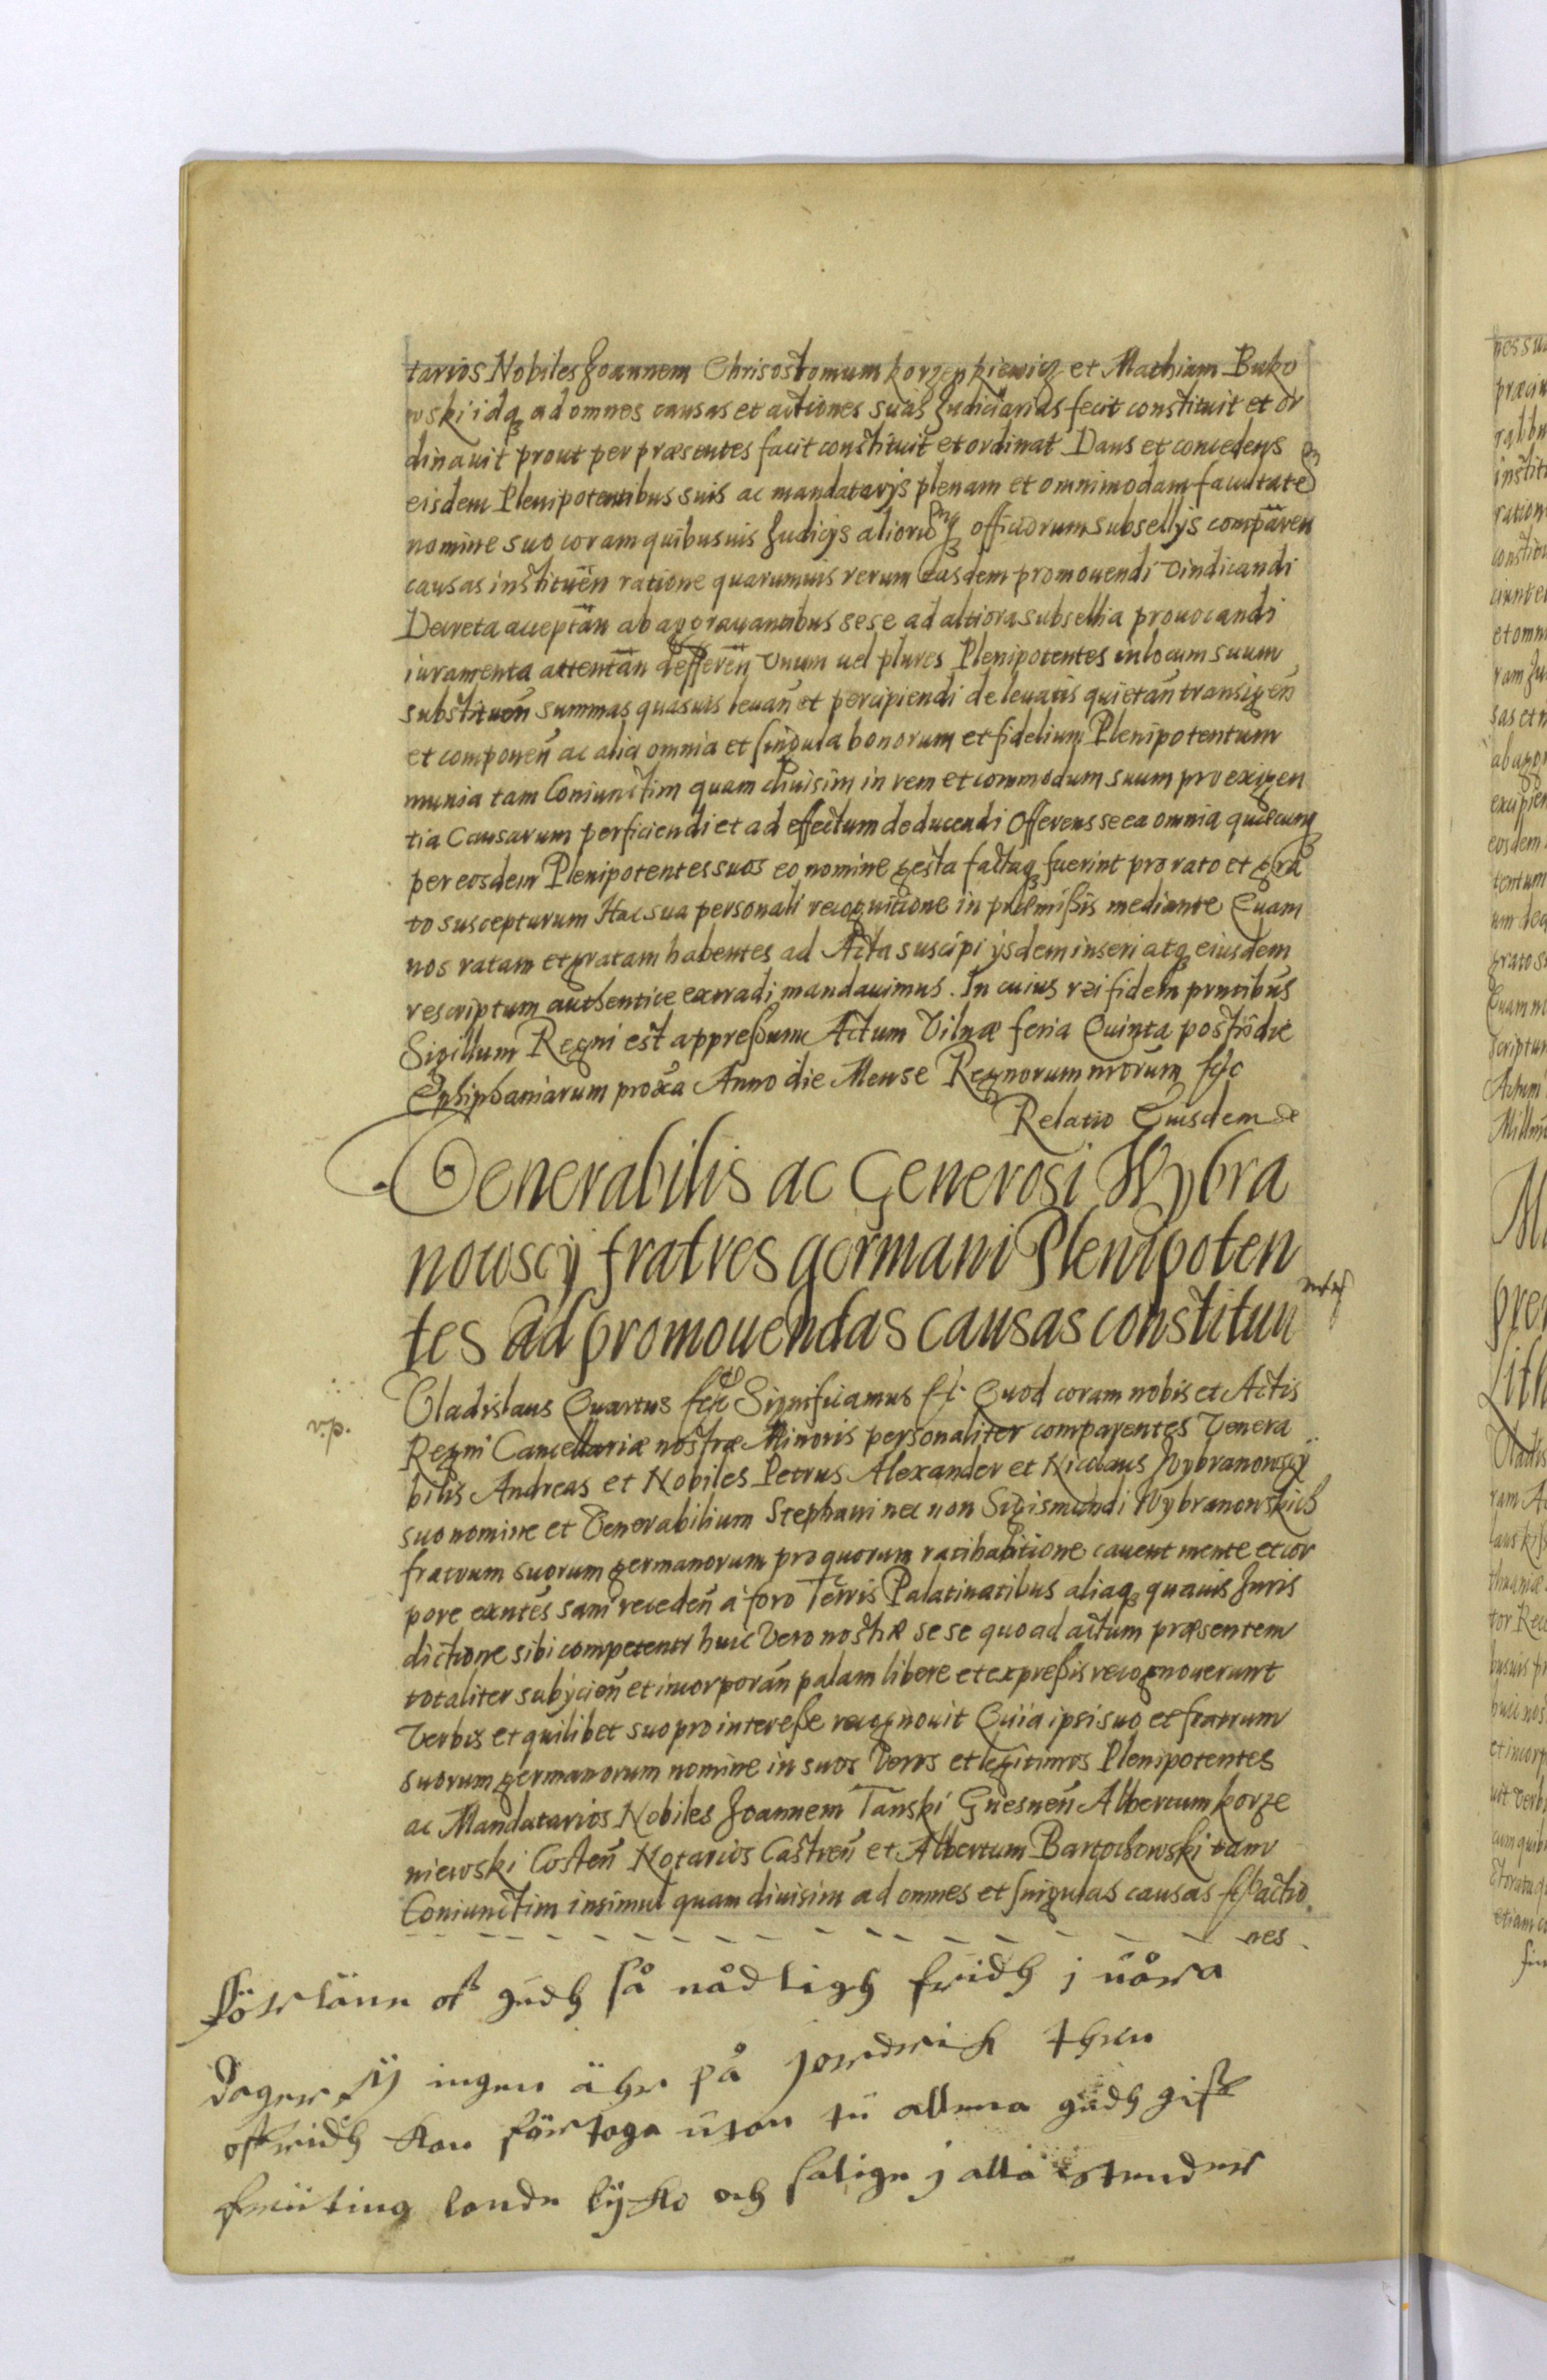 tarios Nobiles Joannem Chrisostomum Korzenkiewicz et Mathiam Buko
wski idq. ad omnes causas et actiones suas Judiciarias fecit constituit et or
dinauit prout per præsentes facit constituit et ordinat Dans et concedens
eisdem Plenipotentibus suis ac mandatarijs plenam et omnimodam facultatem
nomine suo coram quibusuis Judicijs aliorumq. officiorum subsellijs comparen
causas instituen ratione quarumuis rerum easdem promouendi vindicandi
Decreta acceptan ab aggrauantibus sese ad altiora subsellia prouocandi
iuramenta attentan defferen vnum uel plures Plenipotentes in locum suum
substituen summas quasuis leuan et percipiendi de leuatis quietan transigen
et componen ac alia omnia et singula bonorum et fidelium Plenipotentum
munia tam Coniunctim quam diuisim in rem et commodum suum pro exigen
tia Causarum perficiendi et ad effectum deducendi Offerens se ea omnia quæcunq.
per eosdem Plenipotentes suos eo nomine gesta factaq. fuerint pro rato et gra
to suscepturum Hac sua personali recognitione in præmißis mediante Quam
nos ratam et gratam habentes ad Acta suscipi ijsdem inseri atq. eiusdem
rescriptum authentice extradi mandauimus. In cuius rei fidem pntibus
Sigillum Regni est appreßum Actum Vilnæ feria Quinta postridie
Ephiphaniarum proxa Anno die Mense Regnorum nrorum &c
Relatio Eiusdem &
Venerabilis ac Generosi Wybra
nowscÿ fratres germani Plenipoten
tes ad promouendas causas constituu
ntur
Vladislaus Quartus &c Significamus &c. Quod coram nobis et Actis
Regni Cancellariæ nostræ Minoris personaliter comparentes Venera
bilis Andreas et Nobiles Petrus Alexander et Nicolaus Wybranowscÿ
suo nomine et Venerabilium Stephani nec non Sigismundi Wybranowskich
fratrum suorum germanorum pro quorum ratihabitione cauent mente et cor
pore exntes sani receden a foro Terris Palatinatibus aliaq. quauis Juris
dictione sibi competenti huic vero nostræ sese quo ad actum præsentem
totaliter subijcien et incorporan palam libere et expreßis recognouerunt
Verbis et quilibet suo pro intereße recognouit Quia ipsi suo et fratrum
suorum germanorum nomine in suos Veros et legitimos Plenipotentes
ac Mandatarios Nobiles Joannem Tanski Gnesnen Albertum Korze
niewski Costen Notarios Castren et Albertum Bartochowski tam
Coniunctim insimul quam diuisim ad omnes et singulas causas &c actio
nes
förläna oß gudh så nådligh fridh j våra
dager tÿ ingen ähr på jordrich then
oß fridh kan förtaga utan tu allena gudh giff
lande lÿcko och salige j alla stender